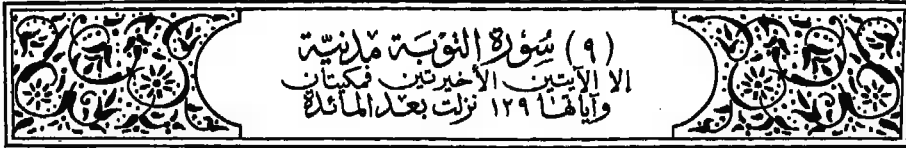 (٩) سُورَة التوْبَة مَدَنيَّة
إلا الآيتين الأخيرتين فمكيتان
وآياتها ١٢٩ نزلت بعد المائدة